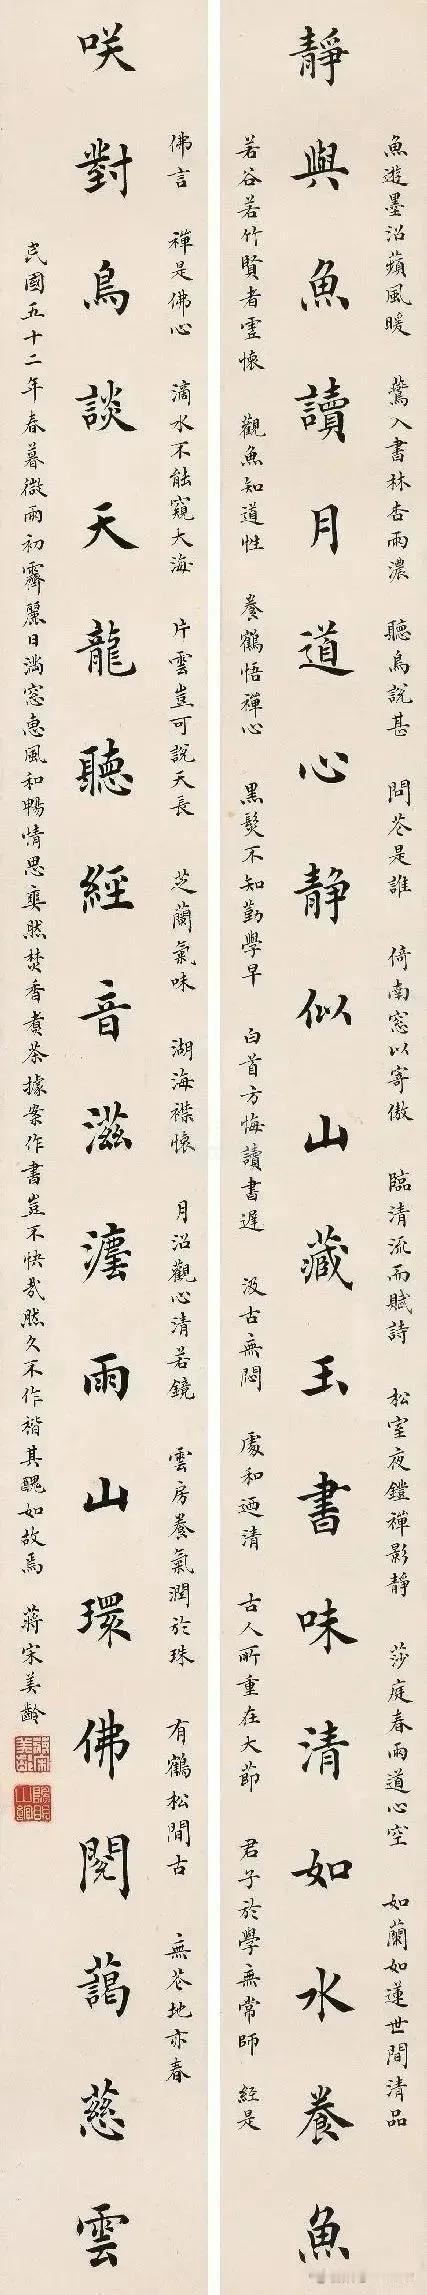 魚遊墨沼蘋風暖 鶯入書林杏雨濃 聽鳥說甚 問花是誰 倚南窓以寄傲 臨清流而賦詩 松室夜鐙禪影靜 莎庭春雨道心空 如蘭如蓮世間清品
靜與魚讀月道心靜似山藏玉書味清如水養魚
若谷若竹賢者虛懷 觀魚知道性 養鶴悟禪心 黑髮不知勤學早 白首方悔讀書遲 汲古無悶 處和迺清 古人所重在大節 君子於學無常師 經是
佛言 禪是佛心 滴水不能窺大海 片雲豈可說天長 芝蘭氣味 湖海襟懷 月沼觀心清若鏡 雲房養氣潤於珠 有鶴松間古 無花地亦春
咲對鳥談天龍聽經音滋灋雨山環佛閣藹慈雲
民國五十二年春暮微雨初霽麗日滿窓惠風和暢情思奕然焚香煮茶據案作書豈不快哉然久不作楷其醜如故焉 蔣宋美齡
蔣宋美齡